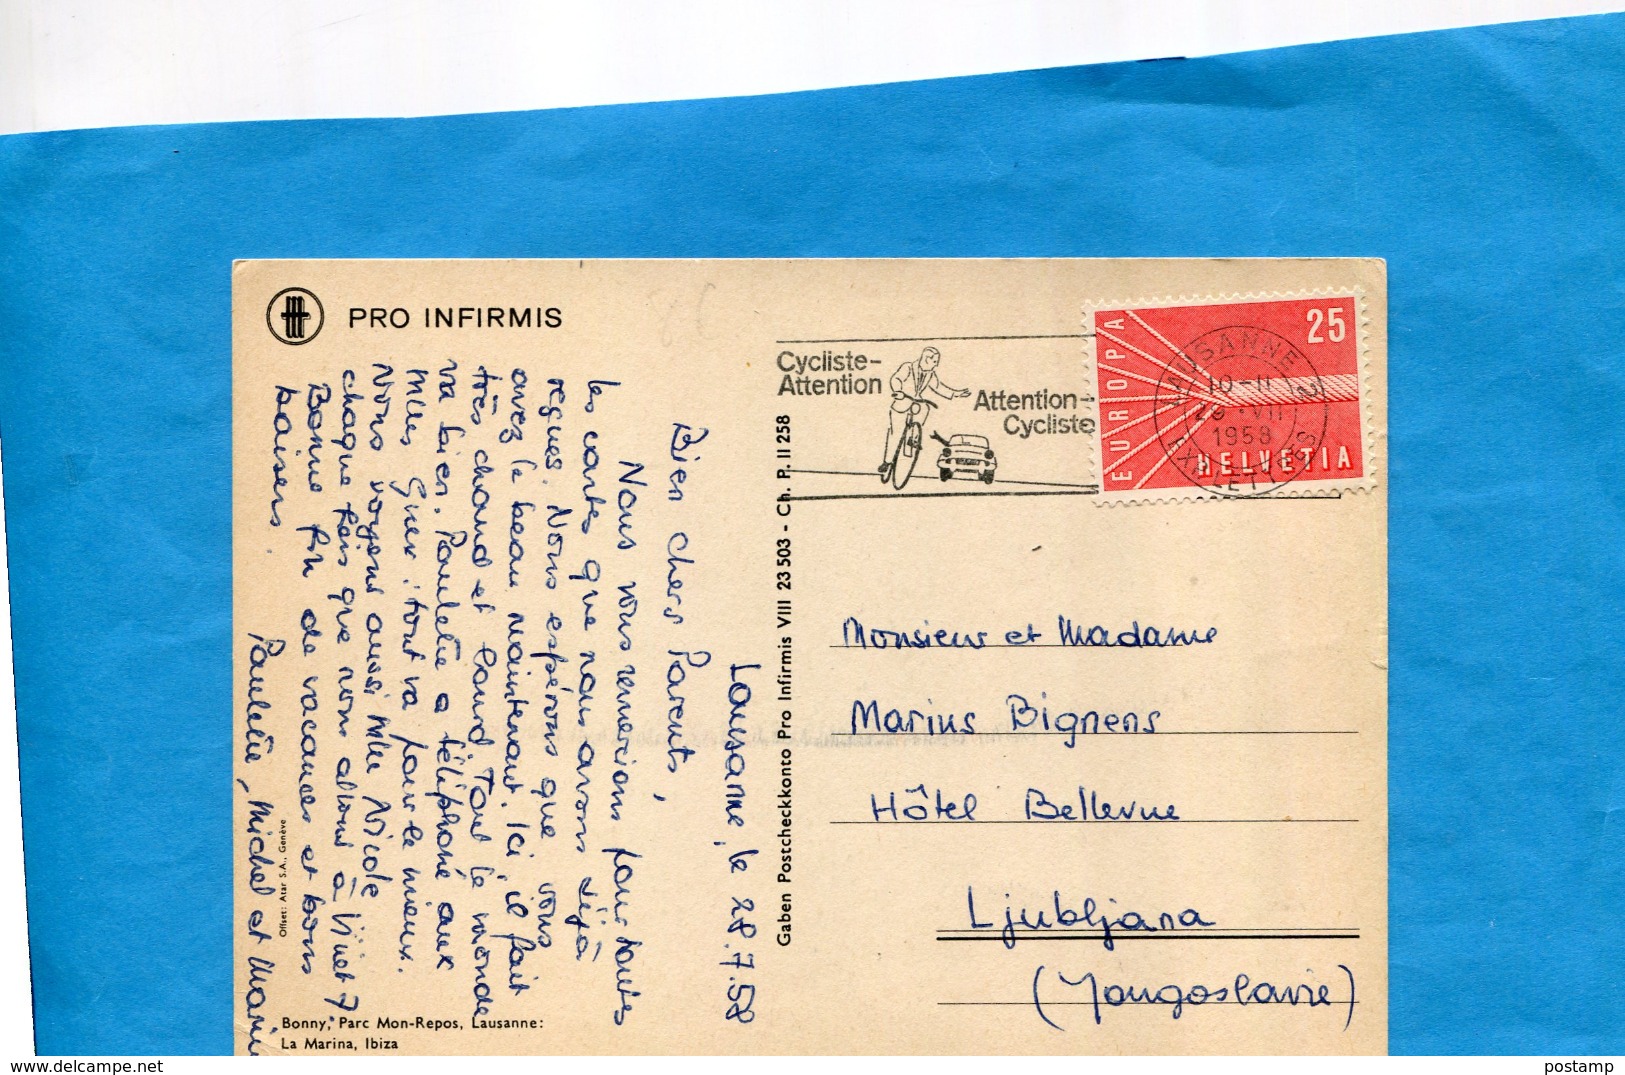 PRO INFIRMIS
Cycliste-
Attention
Attention-
Cycliste
EUROPA
25
HELVETIA
LAUSANNE 2
10-11
29.VII
1958
EXP. LETTRES
Lausanne, le 28.7.58
Bien chers Parents,
Nous vous remercions pour toutes
les cartes que nous avons déjà
reçues. Nous espérons que vous
avez le beau maintenant. Ici, il fait
très chaud et lourd. Tout le monde
va bien. Paulette a téléphoné aux
Mlles Guex: tout va pour le mieux.
Nous voyons aussi Mlle Nicole
chaque fois que nous allons à
Bonne fin de vacances et bons
baisers.
Paulette, Michel et
Offset: Atar S.A., Genève
Bonny, Parc Mon-Repos, Lausanne:
La Marina, Ibiza
Gaben Postcheckkonto Pro Infirmis VIII 23 503 - Ch. P. II 258
Monsieur et Madame
Marius Bignens
Hôtel Bellevue
Ljubljana
(Yougoslavie)
postamp